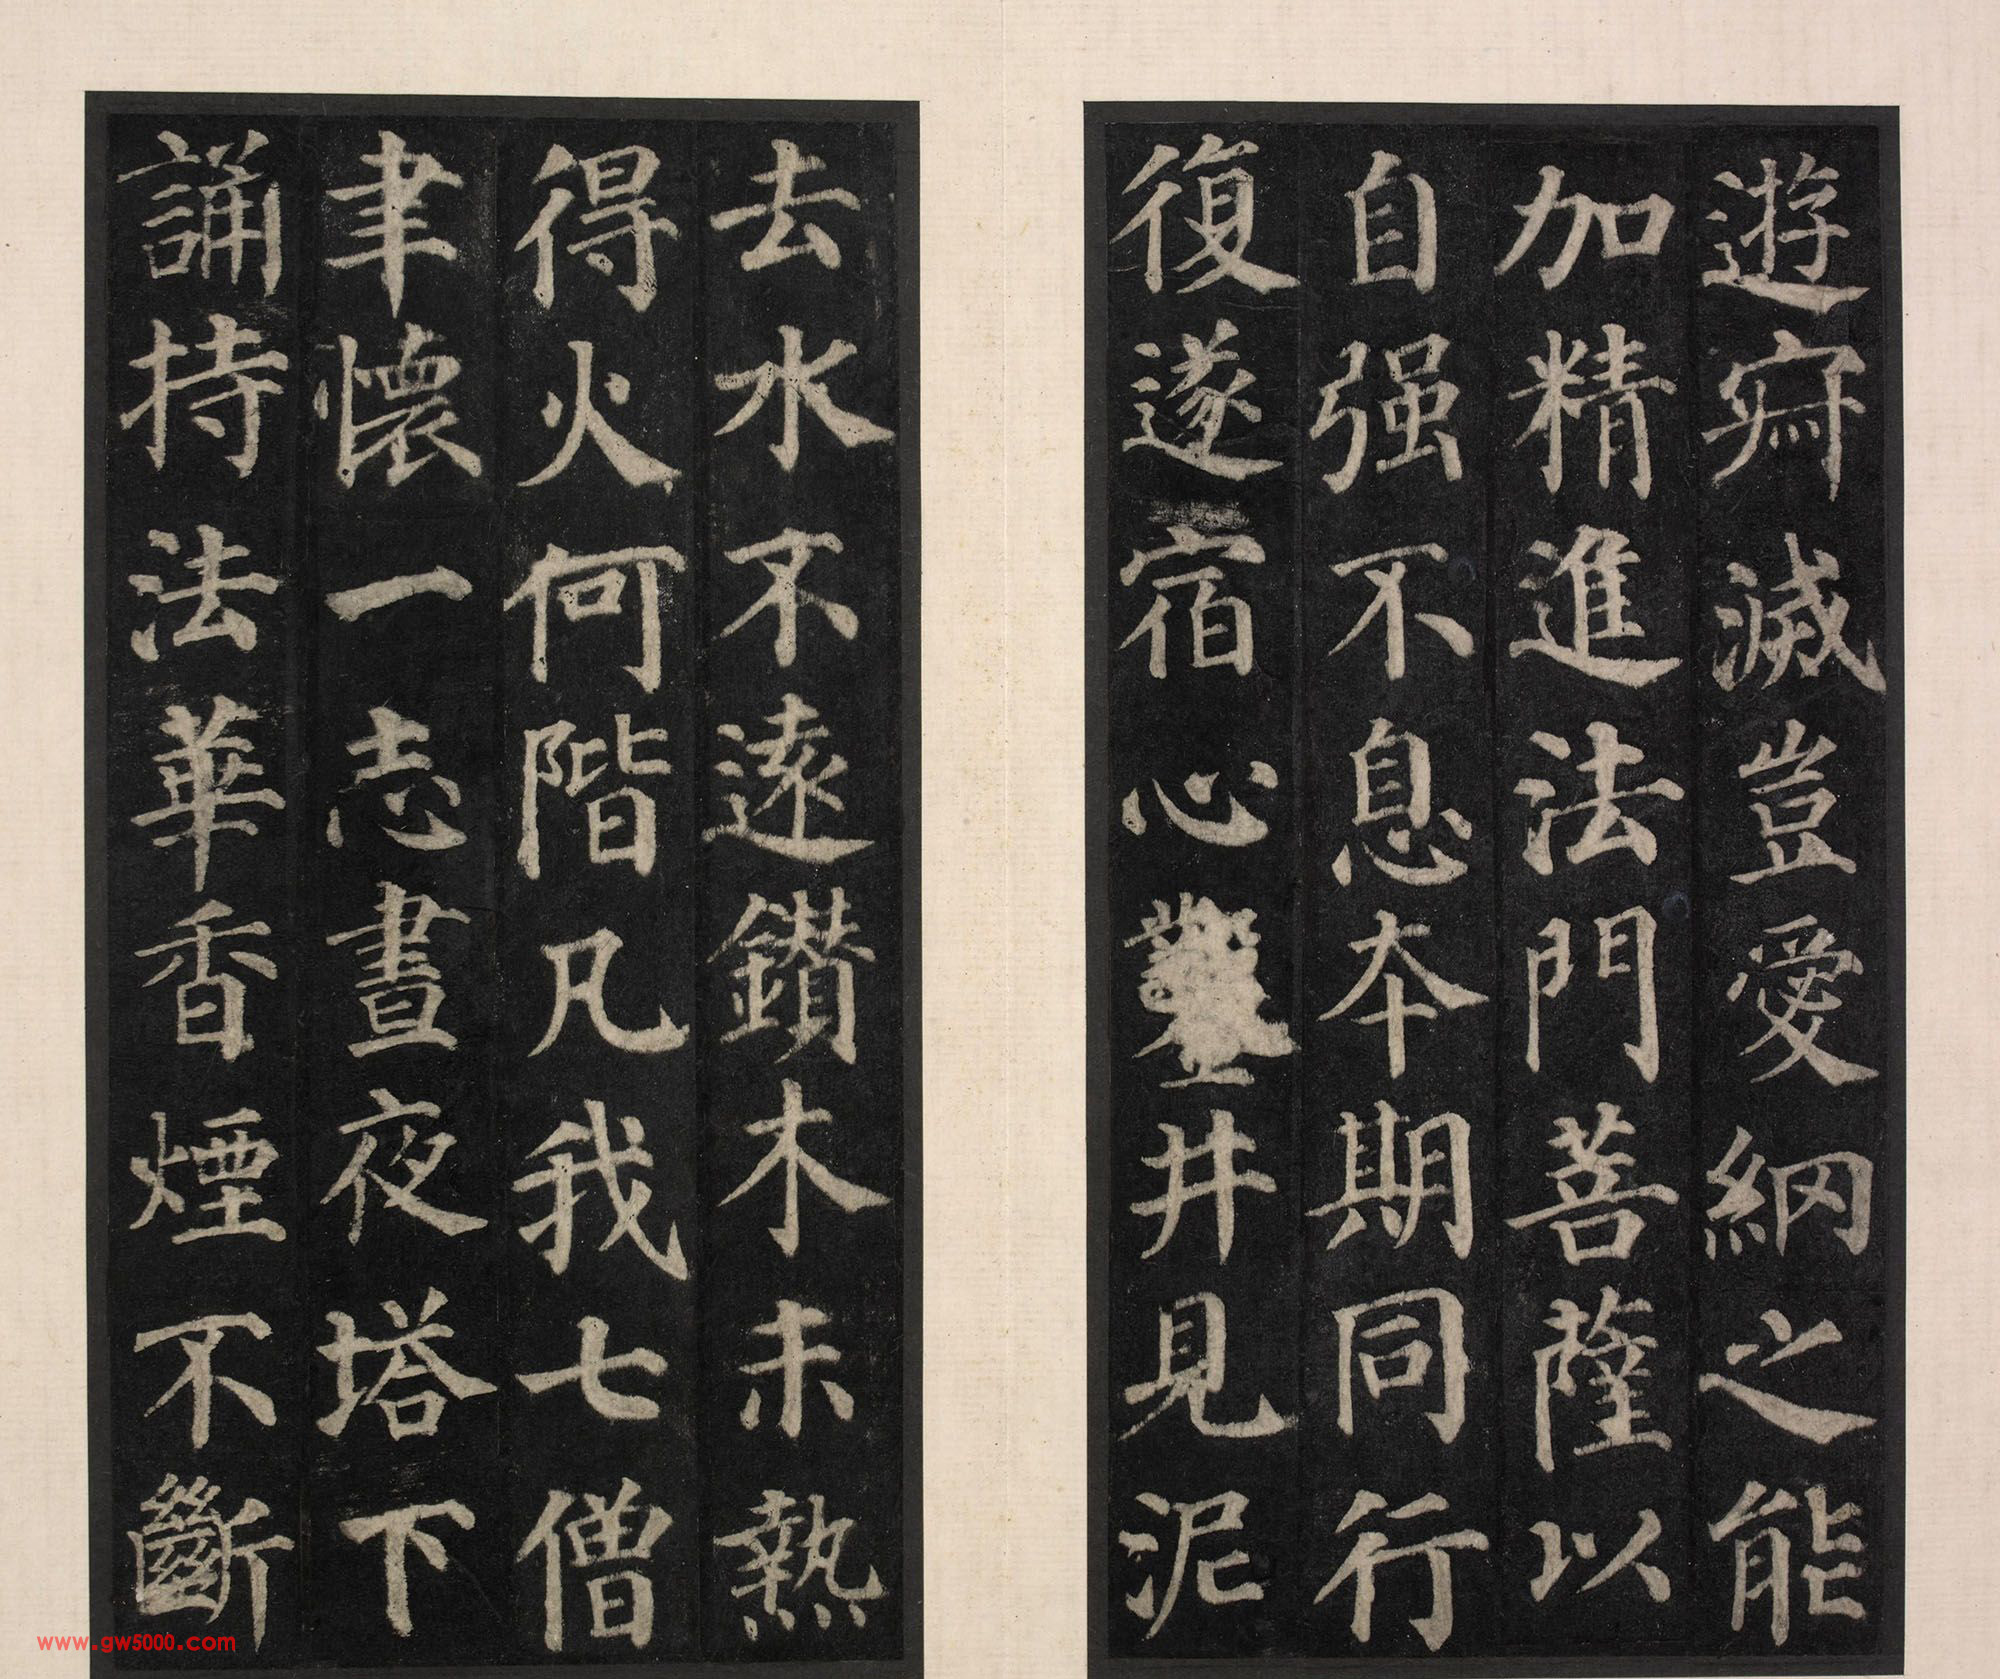 遊寂滅豈愛網之能
加精進法門菩薩以
自强不息本期同行
復遂宿心鑿井見泥
去水不遠鑽木未熱
得火何階凡我七僧
聿懷一志晝夜塔下
誦持法華香煙不斷
www.gw5000.com